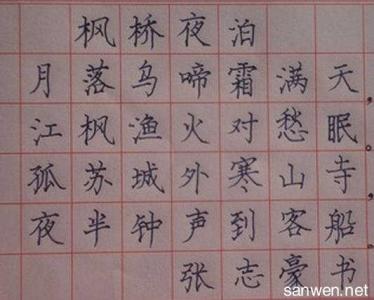 枫桥夜泊
月落乌啼霜满天，
江枫渔火对愁眠。
孤苏城外寒山寺，
夜半钟声到客船。
张志豪书
sanwen.net